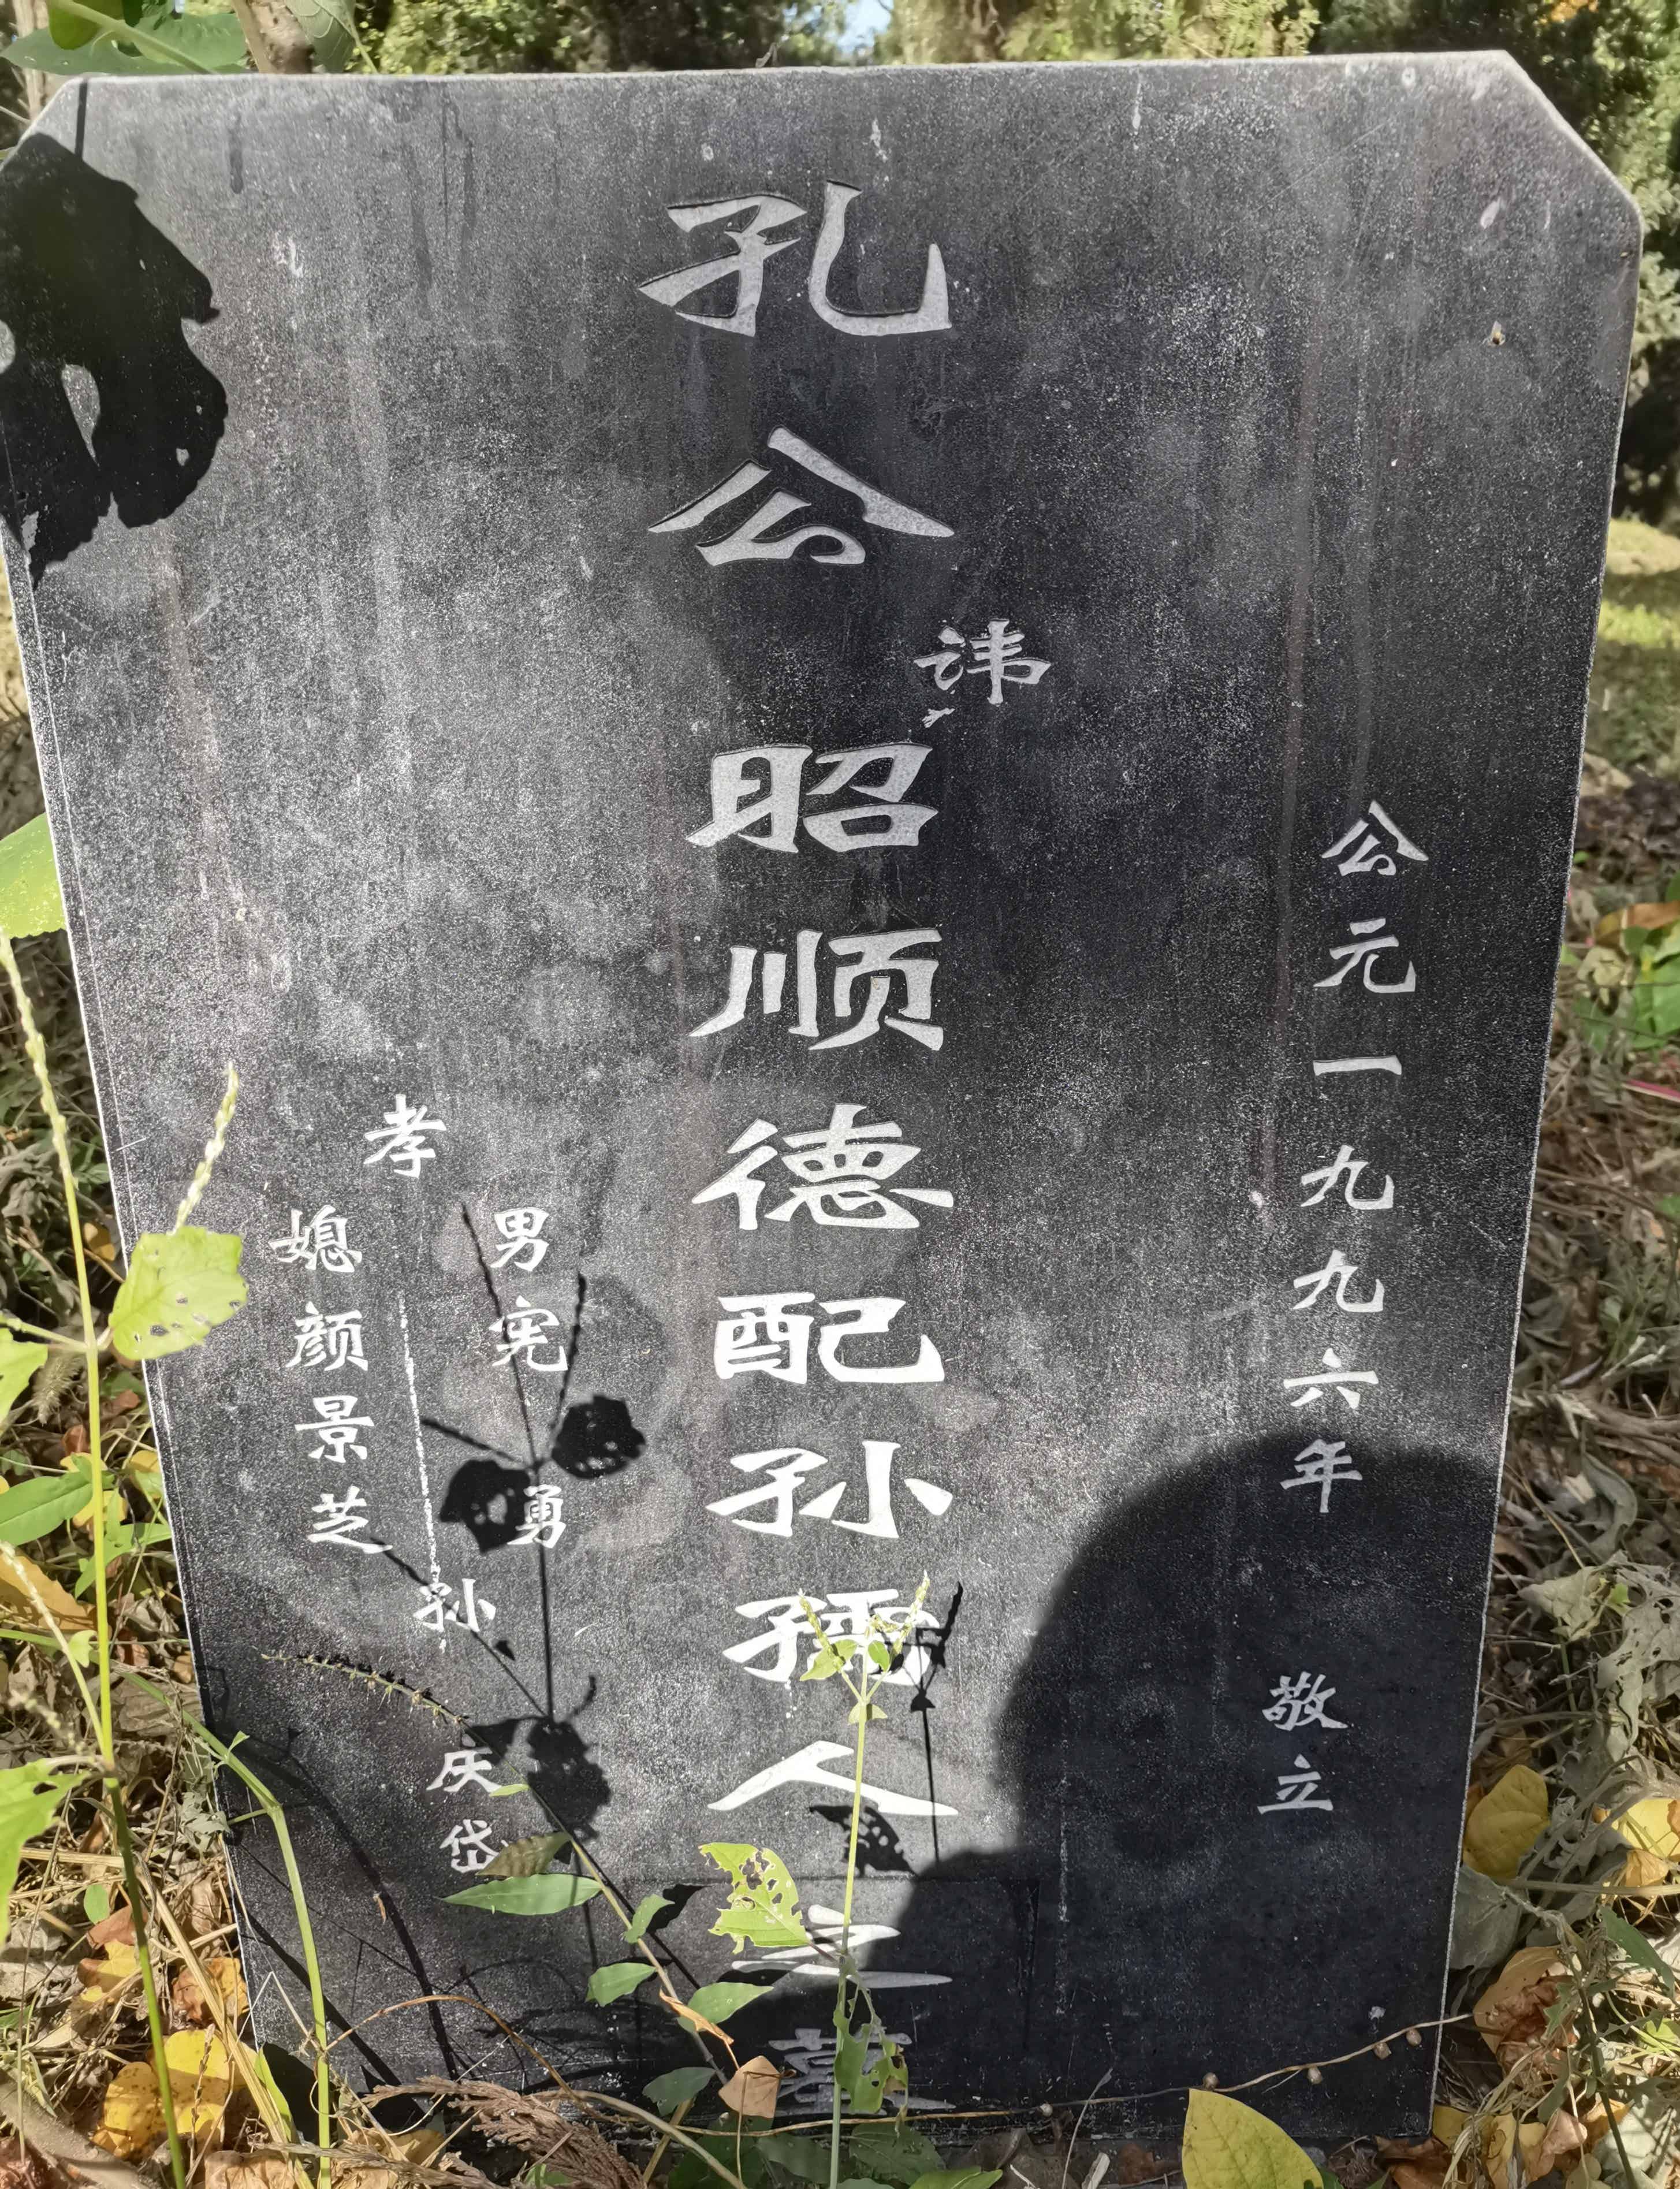 公元一九九六年 敬立
讳
孔公昭顺德配孙孺人之墓
男宪勇
孝 孙庆岱
媳颜景芝